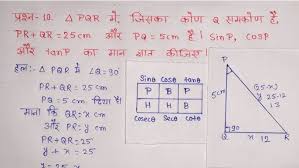 प्रश्न-10. △PQR में, जिसका कोण Q समकोण है,
PR+QR = 25cm और PQ = 5cm है। SinP, COSP
और tanP का मान ज्ञात कीजिए।
हल:- △PQR में ∠Q = 90°
PR+QR = 25cm
PQ = 5cm दिया है।
माना कि QR = x cm
और PR = y cm
PR+QR = 25
y + x = 25
y = 25-x
Sinθ Cosθ tanθ
P B P
H H B
Cosecθ Secθ Cotθ
P
5cm
(25-x)
y 25-12
13
90
Q x 12 R